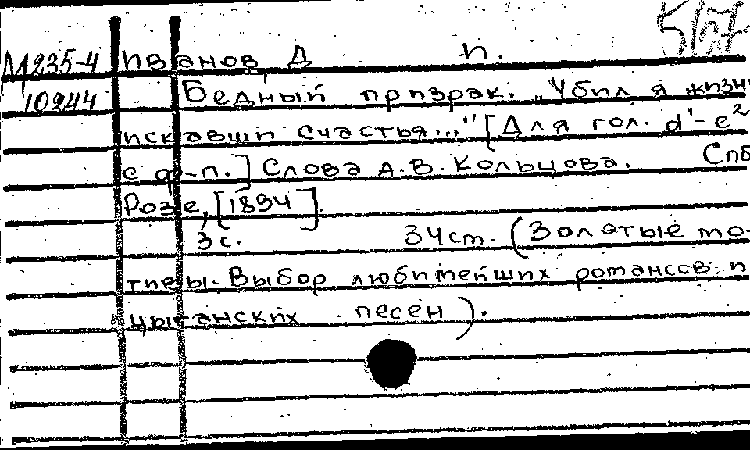 517
М235-4 Иванов Д П.
10944 Бедный призрак. "Убил я жизнь
искавши счастья..." [Для гол. d'-e²
с ф-п.] Слова А.В. Кольцова. Спб
Розе, [1894].
3с. 34ст. (Золотые мо-
тивы. Выбор любимейших романсов и
цыганских песен).